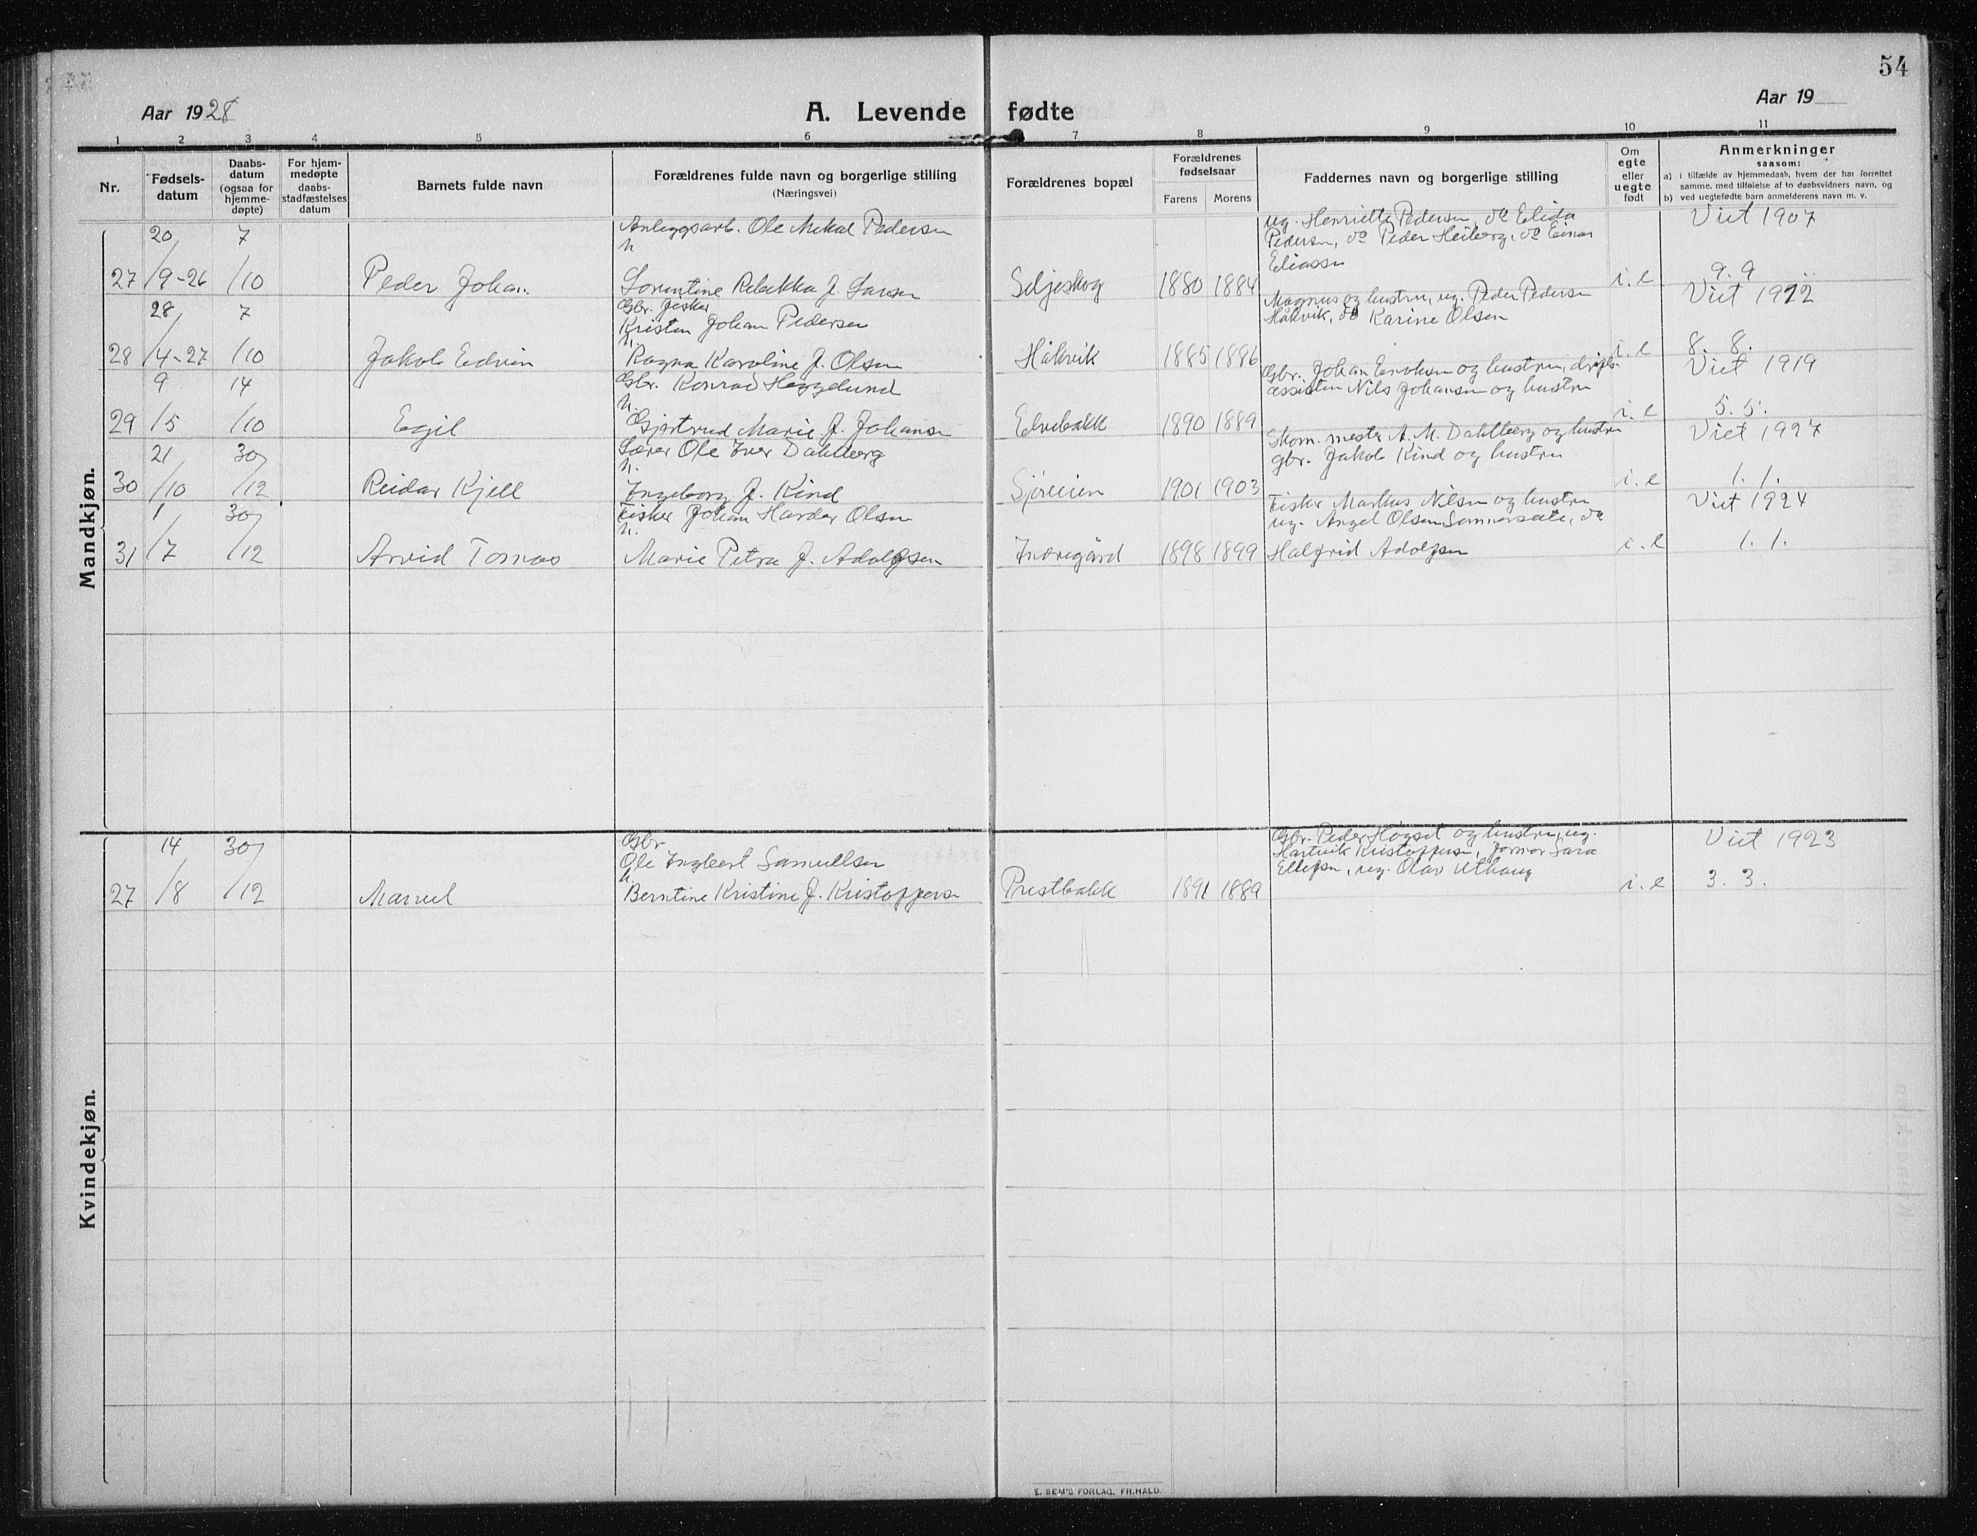 54
Aar 1928
A. Levende fødte
Aar 19
1 2 3 4 5 6 7 8 9 10 11
Nr.
Fødsels-
datum
Daabs-
datum
(ogsaa for
hjemme-
døpte)
For hjem-
medøpte
daabs-
stadfæstelses
datum
Barnets fulde navn
Forældrenes fulde navn og borgerlige stilling
(Næringsvei)
Forældrenes bopæl
Forældrenes
fødselsaar
Farens Morens
Faddernes navn og borgerlige stilling
Om
egte
eller
uegte
født
Anmerkninger
saasom:
a) i tilfælde av hjemmedaab, hvem der har forrettet
samme, med tilføielse af to daabsvidners navn, og
b) ved uegtefødte barn anmelderens navn m. v.
Mandkjøn.
27 20/9-26 7/10 Peder Johan
Anleggsarb. Ole Mikal Pedersen
h.
Sorentine Rebekka f. Larsen
Seljeskog 1880 1884
ug. Henriette Pedersen, do Elida
Pedersen, do Peder Heiberg, do Einar
Eliassen
i.e
Viet 1907
9. 9
28 28/4-27 7/10 Jakob Edvin
Gbr. fisker
Kristen Johan Pedersen
h.
Ragna Karoline f. Olsen
Håkvik 1885 1886
Magnus og hustru, ug. Peder Pedersen
Håkvik, do Karine Olsen
i.e
Viet 1912
8. 8.
29 9/5 14/10 Egil
Gbr. Konrad Heggelund
h.
Gjertrud Marie f. Johansen
Elvebakk 1890 1889
Gbr. Johan Enoksen og hustru,
assistent Nils Johansen og hustru
i.e
Viet 1919
5. 5.
30 21/10 30/12 Reidar Kjell
Lærer Ole Iver Dahlberg
h.
Ingeborg f. Kind
Sjøveien 1901 1903
Skom. mester A. M. Dahlberg og hustru
gbr. Jakob Kind og hustru
i.e
Viet 1927
1. 1.
31 1/7 30/12 Arvid Tomas
Fisker Johan Hardar Olsen
h.
Marie Petra f. Adolfsen
Indregård 1898 1899
Fisker Markus Nilsen og hustru
ug. Angel Olsen Sommersete, do
Halfrid Adolfsen
i.e
Viet 1924
1. 1.
Kvindekjøn.
27 14/8 30/12
Gbr
Ole Ingbert Samuelsen
h.
Berntine Kristine f. Kristoffersen
Prestbakk 1891 1889
Gbr. Peder Høgset og hustru, ug.
Hartvik Kristoffersen, Sara
Ellefsen, ug. Olav Uthaug
i.e
Viet 1923
3. 3.
E. SEM'S FORLAG, FR.HALD.